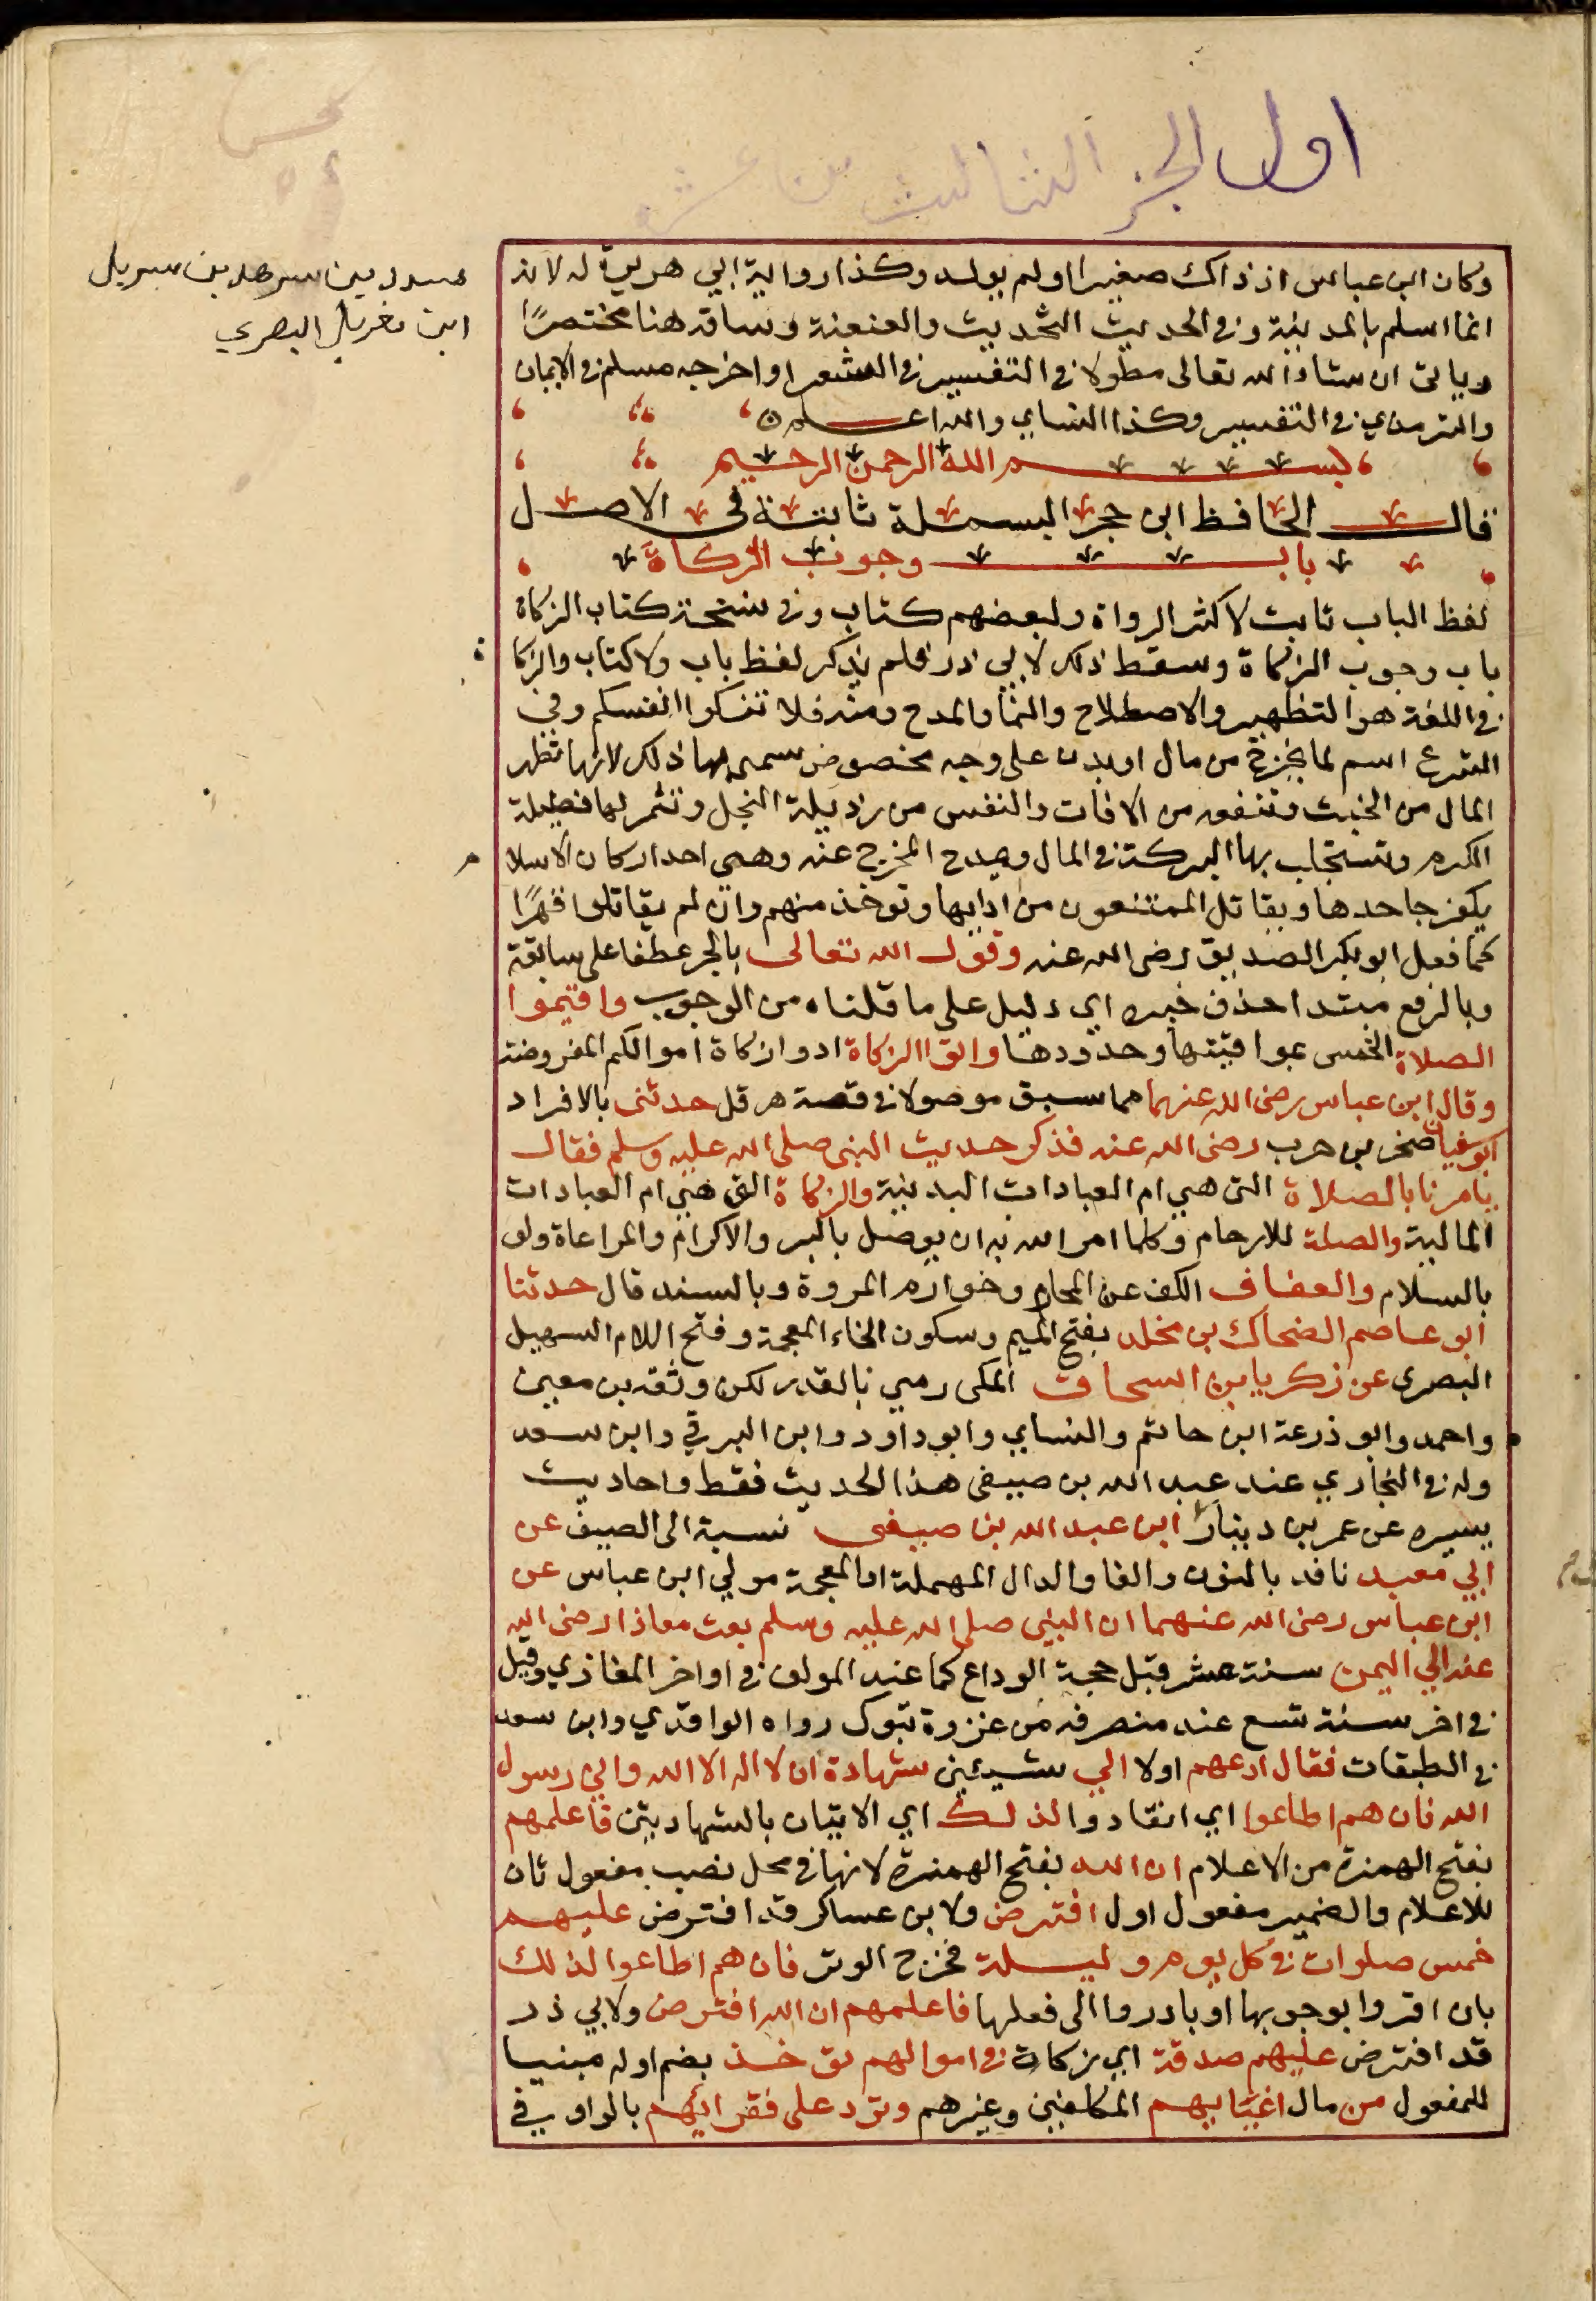 اول الجز الثالث من عشر
مسدد بن سرهد بن سربل
ابن مغربل البصري
وكان ابن عباس اذ ذاك صغيرا ولم يولد وكذا رواية ابي هريرة له لانه
انما اسلم بالمدينة وفي الحديث التحديث والعنعنة وساقه هنا مختصرًا
وياتى ان شاء الله تعالى مطولا في التفسير في الشعرا واخرجه مسلم في الايمان
والترمذي في التفسير وكذا النساي والله اعلم
بسم الله الرحمن الرحيم
قال الحافظ ابن حجر البسملة ثابتة في الاصل
باب وجوب الزكاة
لفظ الباب ثابت لاكثر الرواة ولبعضهم كتاب وفي نسخة كتاب الزكاة
باب وجوب الزكاة وسقط ذلك لابي ذر فلم يذكر لفظ باب ولا كتاب والزكاة
في اللغة هو التطهير والاصطلاح والنما والمدح ومنه فلا تزكوا انفسكم وفي
الشرع اسم لما يخرج من مال او بدن على وجه مخصوص سمى بها ذلك لانها تطهر
المال من الخبث وتنفعه من الافات والنفس من رذيلة البخل وتثمر لها فضيلة
الكرم وتستجلب بها البركة في المال ويمدح المخرج عنه وهي احد اركان الاسلام
يكفر جاحدها ويقاتل الممتنعون من ادايها وتوخذ منهم وان لم يقاتلوا قهرًا
كما فعل ابو بكر الصديق رضى الله عنه وقول الله تعالى بالجر عطفا على سابقة
وبالرفع مبتدا حذف خبره اي دليل على ما قلناه من الوجوب واقيموا
الصلاة الخمس بمواقيتها وحدودها واتوا الزكاة ادوا زكاة اموالكم المفروضة
وقال ابن عباس رضى الله عنهما مما سبق موصولا في قصة هرقل حدثنى بالافراد
ابو سفيان صخر بن حرب رضى الله عنه فذكر حديث النبى صلى الله عليه وسلم فقال
يامرنا بالصلاة التى هي ام العبادات البدنية والزكاة التى هي ام العبادات
المالية والصلة للارحام وكلما امر الله به ان يوصل بالبر والاكرام والمراعاة ولو
بالسلام والعفاف الكف عن المحارم وخوارم المروة وبالسند قال حدثنا
ابو عاصم الضحاك بن مخلد بفتح الميم وسكون الخاء المعجمة وفتح اللام السهيل
البصرى عن زكريا بن اسحاق المكى رمي بالقدر لكن وثقه بن معين
واحمد وابو ذرعة ابن حاتم والنساي وابو داود وابن البرقي وابن سعد
وله في البخاري عند عبد الله بن صيفى هذا الحديث فقط واحاديث
يسيره عن عمر بن دينار ابن عبد الله بن صيفى نسبة الى الصيف عن
ابي معبد نافد بالنون والفا والدال المهملة او المعجمة مولي ابن عباس عن
ابن عباس رضى الله عنهما ان النبى صلى الله عليه وسلم بعث معاذا رضى الله
عنه الي اليمن سنة عشر قبل حجة الوداع كما عند المولف في اواخر المغازي وقيل
في اخر سنة تسع عند منصرفه من غزوة تبوك رواه الواقدي وابن سعد
في الطبقات فقال ادعهم اولا الي شيئين شهادة ان لا اله الا الله واني رسول
الله فان هم اطاعوا اي انقادوا لذلك اي الاتيان بالشهادتين فاعلمهم
بفتح الهمزة من الاعلام ان الله بفتح الهمزة لانها في محل نصب مفعول ثان
للاعلام والضمير مفعول اول افترض ولابن عساكر قد افترض عليهم
خمس صلوات في كل يوم وليلة فخرج الوتر فان هم اطاعوا لذلك
بان اقروا بوجوبها او بادروا الى فعلها فاعلمهم ان الله افترض ولابي ذر
قد افترض عليهم صدقة اي زكاة في اموالهم توخذ بضم اوله مبنيا
للمفعول من مال اغنيايهم المكلفين وغيرهم وترد على فقرائهم بالواو في